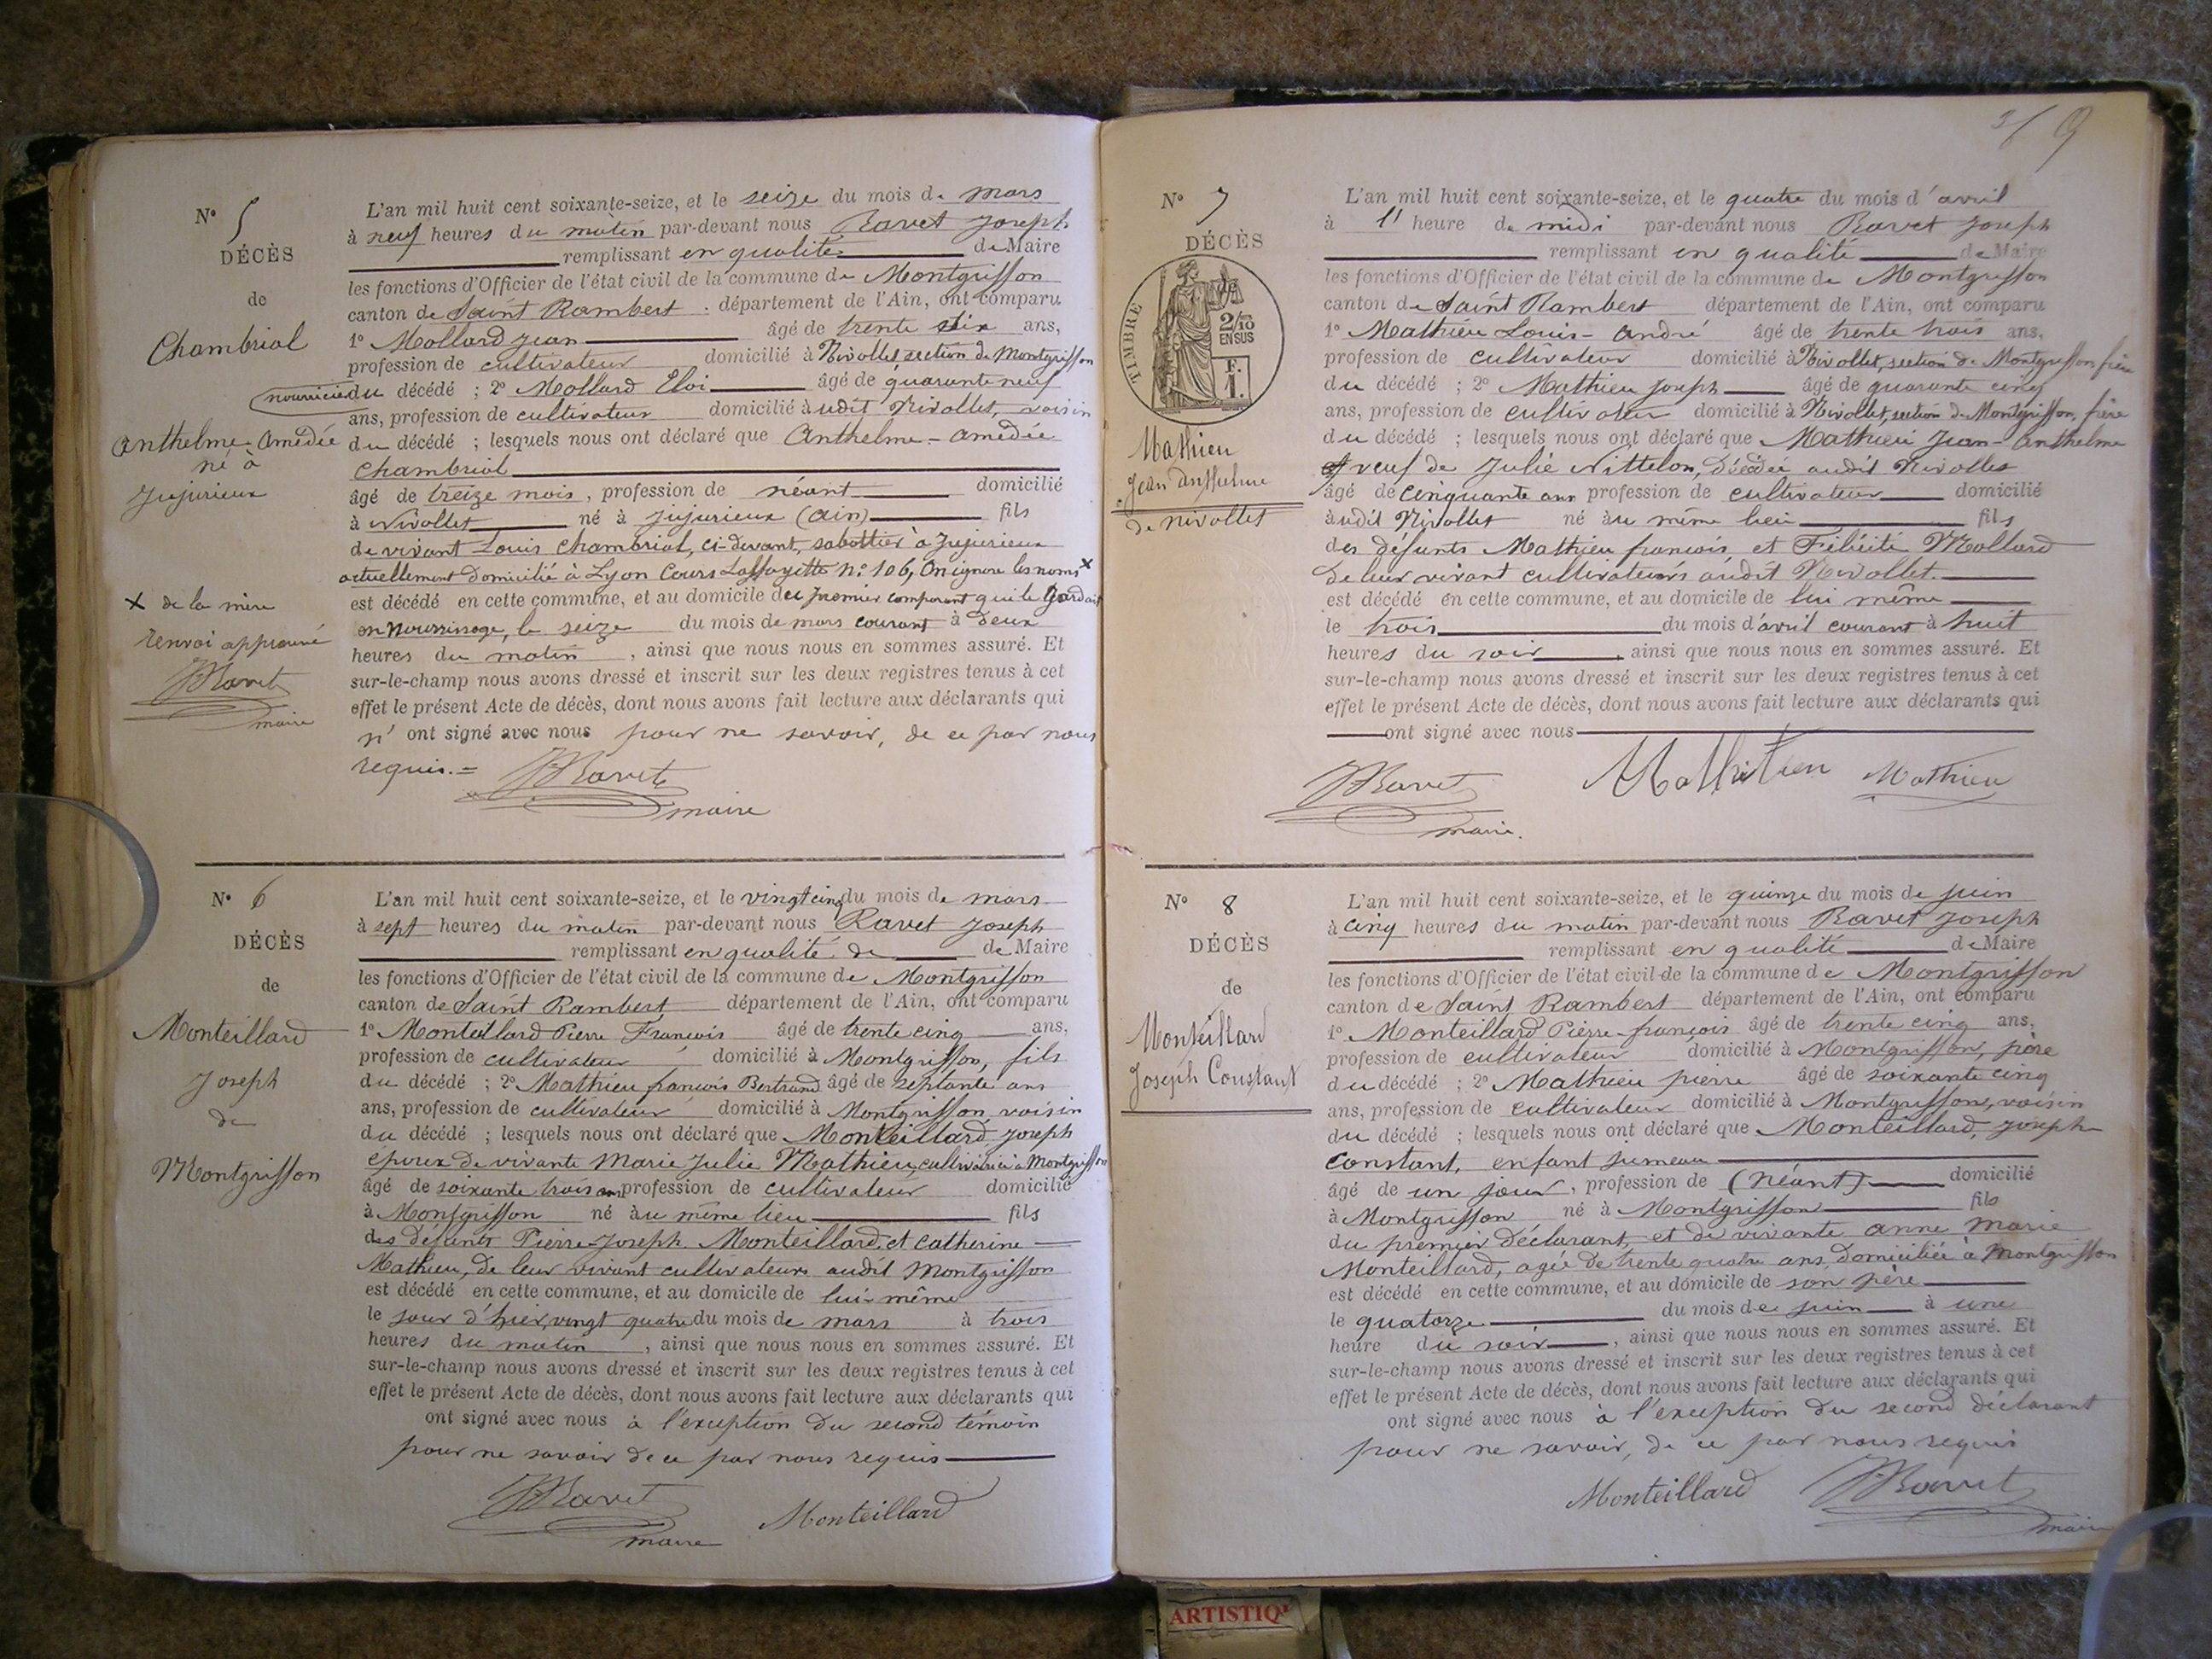 N° 5
DÉCÈS
de
Chambrial
Anthelme-Amédée
né à
Jujurieux
X de la mère
renvoi approuvé
JRavet
maire
L'an mil huit cent soixante-seize, et le seize du mois de mars
à neuf heures du matin par-devant nous Ravet Joseph
remplissant en qualité de Maire
les fonctions d'Officier de l'état civil de la commune de Montgriffon
canton de Saint Rambert département de l'Ain, ont comparu
1° Mollard Jean âgé de trente six ans,
profession de cultivateur domicilié à Nivollet, section de Montgriffon
nourricier du décédé ; 2° Mollard Eloi âgé de quarante neuf
ans, profession de cultivateur domicilié audit Nivollet, voisin
du décédé ; lesquels nous ont déclaré que Anthelme-Amédée
Chambrial
âgé de treize mois, profession de néant domicilié
à Nivollet né à Jujurieux (Ain) fils
de vivant Louis Chambrial, ci-devant, sabottier à Jujurieux
actuellement domicilié à Lyon Cours Laffayette n° 106, On ignore les noms X
est décédé en cette commune, et au domicile du premier comparant qui le gardait
en nourrissage, le seize du mois de mars courant à deux
heures du matin, ainsi que nous nous en sommes assuré. Et
sur-le-champ nous avons dressé et inscrit sur les deux registres tenus à cet
effet le présent Acte de décès, dont nous avons fait lecture aux déclarants qui
n' ont signé avec nous pour ne savoir, de ce par nous
requis.=
JRavet
maire
N° 6
DÉCÈS
de
Monteillard
Joseph
de
Montgriffon
L'an mil huit cent soixante-seize, et le vingt cinq du mois de mars
à sept heures du matin par-devant nous Ravet Joseph
remplissant en qualité de de Maire
les fonctions d'Officier de l'état civil de la commune de Montgriffon
canton de Saint Rambert département de l'Ain, ont comparu
1° Monteillard Pierre François âgé de trente cinq ans,
profession de cultivateur domicilié à Montgriffon, fils
du décédé ; 2° Mathieu françois Bertrand âgé de septante ans
ans, profession de cultivateur domicilié à Montgriffon voisin
du décédé ; lesquels nous ont déclaré que Monteillard Joseph
époux de vivante Marie Julie Mathieu, cultivatrice à Montgriffon
âgé de soixante trois ans profession de cultivateur domicilié
à Montgriffon né au même lieu fils
des défunts Pierre-Joseph Monteillard et Catherine
Mathieu, de leur vivant cultivateurs audit Montgriffon
est décédé en cette commune, et au domicile de lui-même
le jour d'hier, vingt quatre du mois de mars à trois
heures du matin, ainsi que nous nous en sommes assuré. Et
sur-le-champ nous avons dressé et inscrit sur les deux registres tenus à cet
effet le présent Acte de décès, dont nous avons fait lecture aux déclarants qui
ont signé avec nous à l'exception du second témoin
pour ne savoir de ce par nous requis
JRavet
maire
Monteillard
9
N° 7
DÉCÈS
TIMBRE
2/10
EN SUS
F.
1.
Mathieu
Jean Anthelme
de Nivollet
L'an mil huit cent soixante-seize, et le quatre du mois d'avril
à 1' heure de midi par-devant nous Ravet Joseph
remplissant en qualité de Maire
les fonctions d'Officier de l'état civil de la commune de Montgriffon
canton de Saint Rambert département de l'Ain, ont comparu
1° Mathieu Louis-André âgé de trente trois ans,
profession de cultivateur domicilié à Nivollet, section de Montgriffon frère
du décédé ; 2° Mathieu Joseph âgé de quarante cinq
ans, profession de cultivateur domicilié à Nivollet, section de Montgriffon, frère
du décédé ; lesquels nous ont déclaré que Mathieu Jean-Anthelme
veuf de Julie Nittelon, décédée audit Nivollet
âgé de cinquante ans profession de cultivateur domicilié
audit Nivollet né au même lieu fils
des défunts Mathieu françois et Félicité Mollard
de leur vivant cultivateurs audit Nivollet.
est décédé en cette commune, et au domicile de lui même
le trois du mois d'avril courant à huit
heures du soir, ainsi que nous nous en sommes assuré. Et
sur-le-champ nous avons dressé et inscrit sur les deux registres tenus à cet
effet le présent Acte de décès, dont nous avons fait lecture aux déclarants qui
ont signé avec nous
JRavet
maire.
Mathieu
Mathieu
N° 8
DÉCÈS
de
Monteillard
Joseph Constant
L'an mil huit cent soixante-seize, et le quinze du mois de juin
à cinq heures du matin par-devant nous Ravet Joseph
remplissant en qualité de Maire
les fonctions d'Officier de l'état civil de la commune de Montgriffon
canton de Saint Rambert département de l'Ain, ont comparu
1° Monteillard Pierre-françois âgé de trente cinq ans,
profession de cultivateur domicilié à Montgriffon, père
du décédé ; 2° Mathieu pierre âgé de soixante cinq
ans, profession de cultivateur domicilié à Montgriffon, voisin
du décédé ; lesquels nous ont déclaré que Monteillard, Joseph
Constant, enfant jumeau
âgé de un jour, profession de (néant) domicilié
à Montgriffon né à Montgriffon fils
du premier déclarant, et de vivante anne marie
Monteillard, agée de trente quatre ans, domiciliée à Montgriffon
est décédé en cette commune, et au domicile de son père
le quatorze du mois de juin à une
heure du soir, ainsi que nous nous en sommes assuré. Et
sur-le-champ nous avons dressé et inscrit sur les deux registres tenus à cet
effet le présent Acte de décès, dont nous avons fait lecture aux déclarants qui
ont signé avec nous à l'exception du second déclarant
pour ne savoir, de ce par nous requis
Monteillard
JRavet
maire
ARTISTIQU